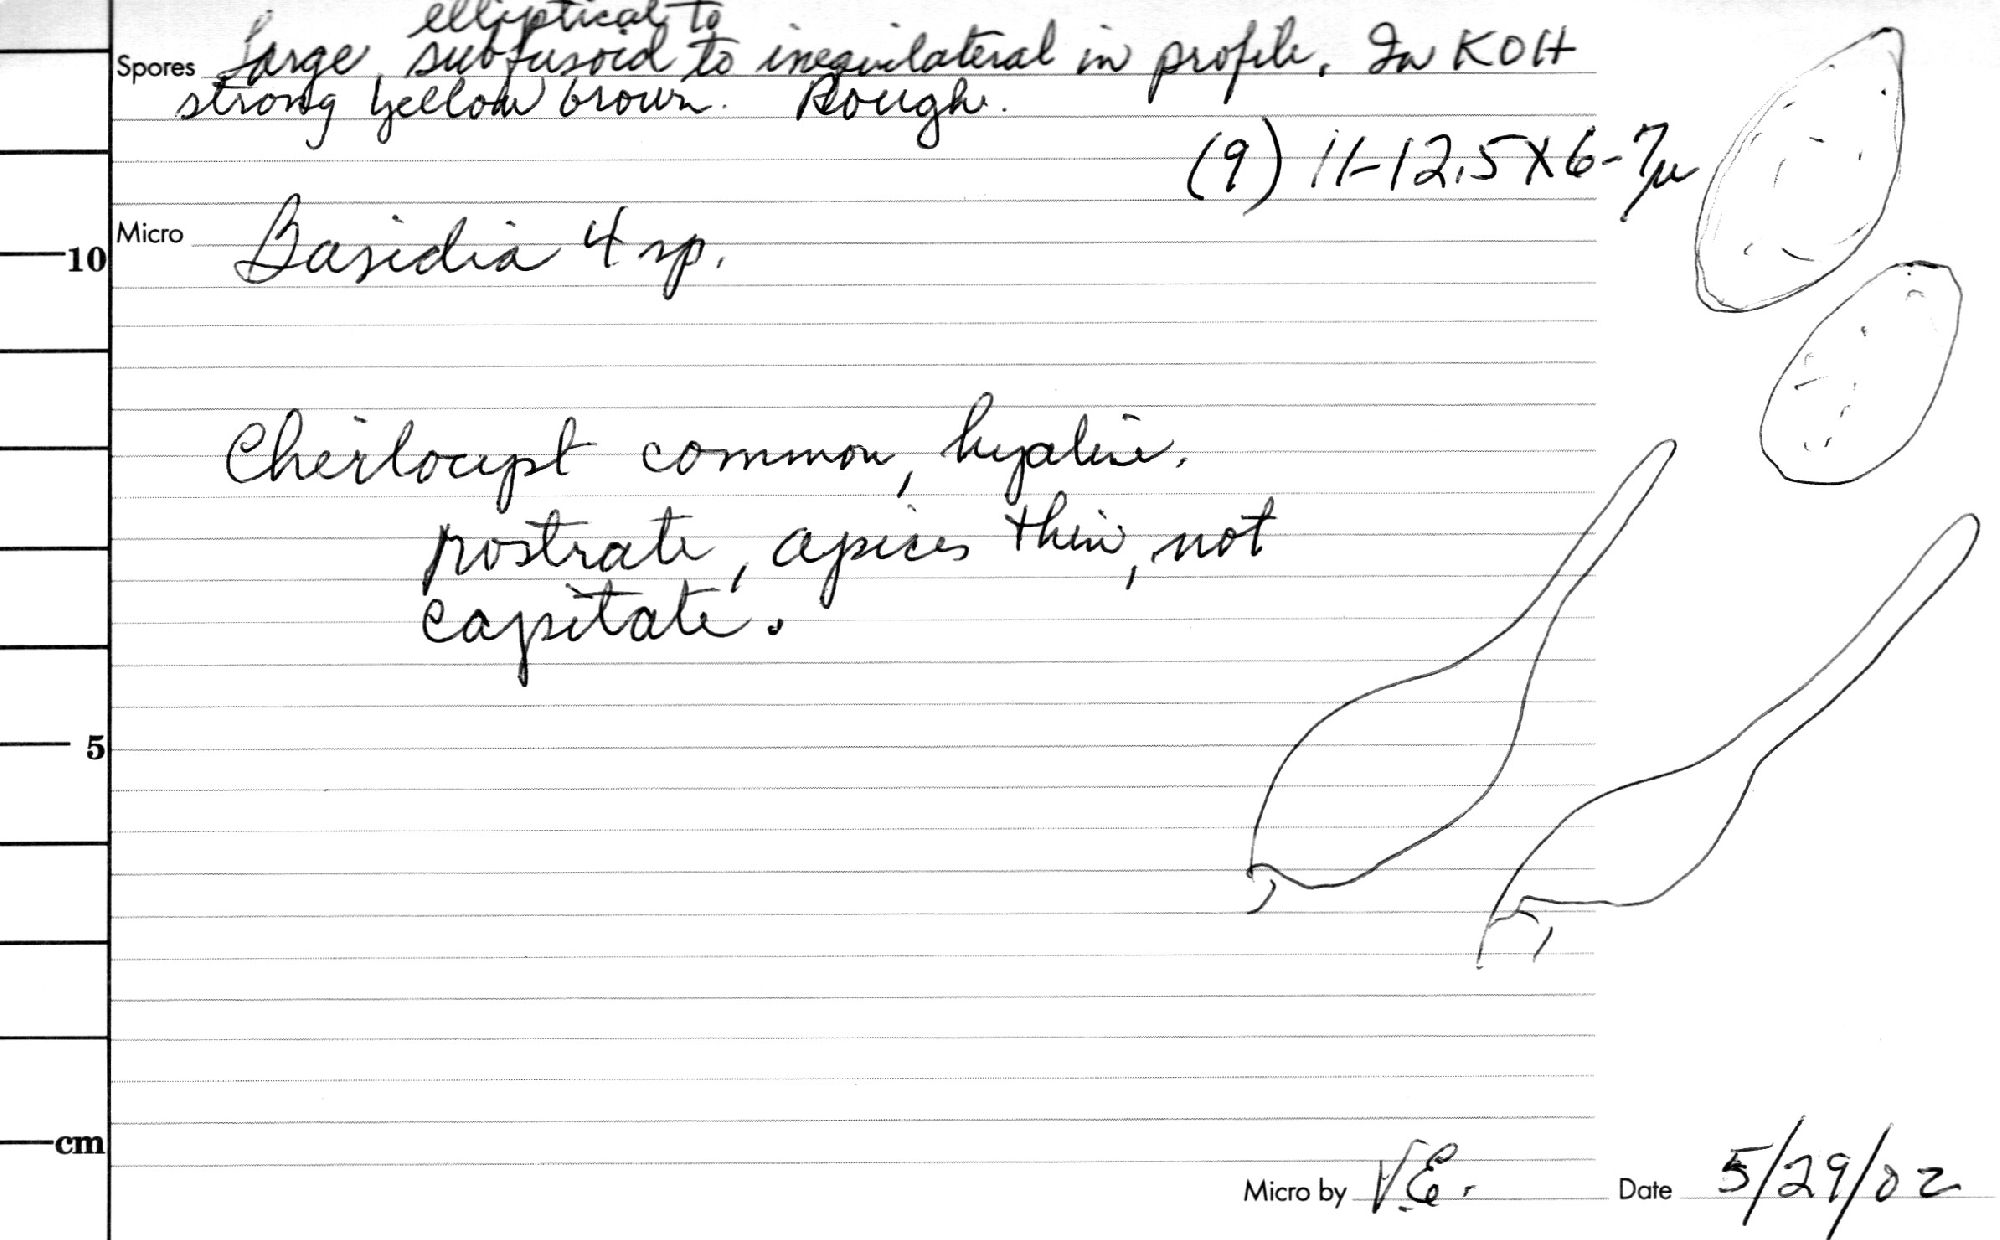 elliptical to
Spores Large, subfusoid to inequilateral in profile. In KOH
strong yellow brown. Rough.
(9) 11-12.5 X 6-7µ
Micro Basidia 4 sp.
10
Cheilocyst common, hyaline.
rostrate, apices thin, not
capitate.
5
cm
Micro by V.E. Date 5/29/02